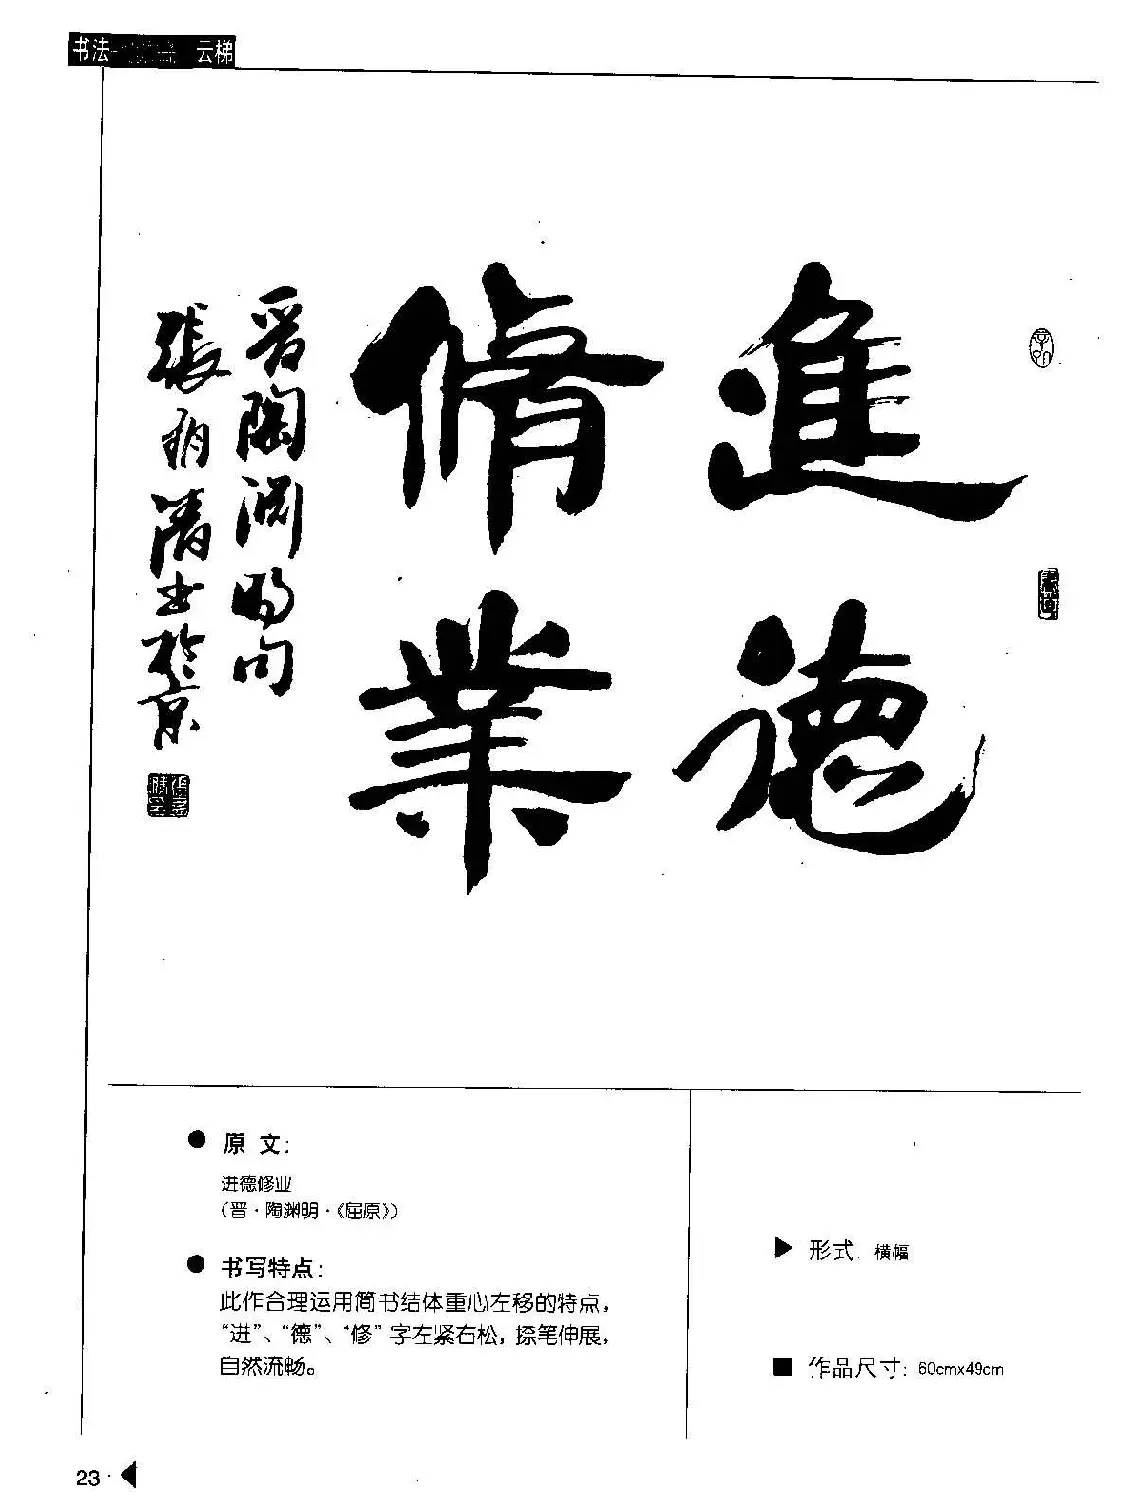 书法 云梯
進德
脩業
晋陶渊明句
張有清書於京
原文：
进德修业
（晋·陶渊明·《屈原》）
书写特点：
此作合理运用简书结体重心左移的特点，
“进”、“德”、“修”字左紧右松，捺笔伸展，
自然流畅。
形式：横幅
作品尺寸：60cmx49cm
23